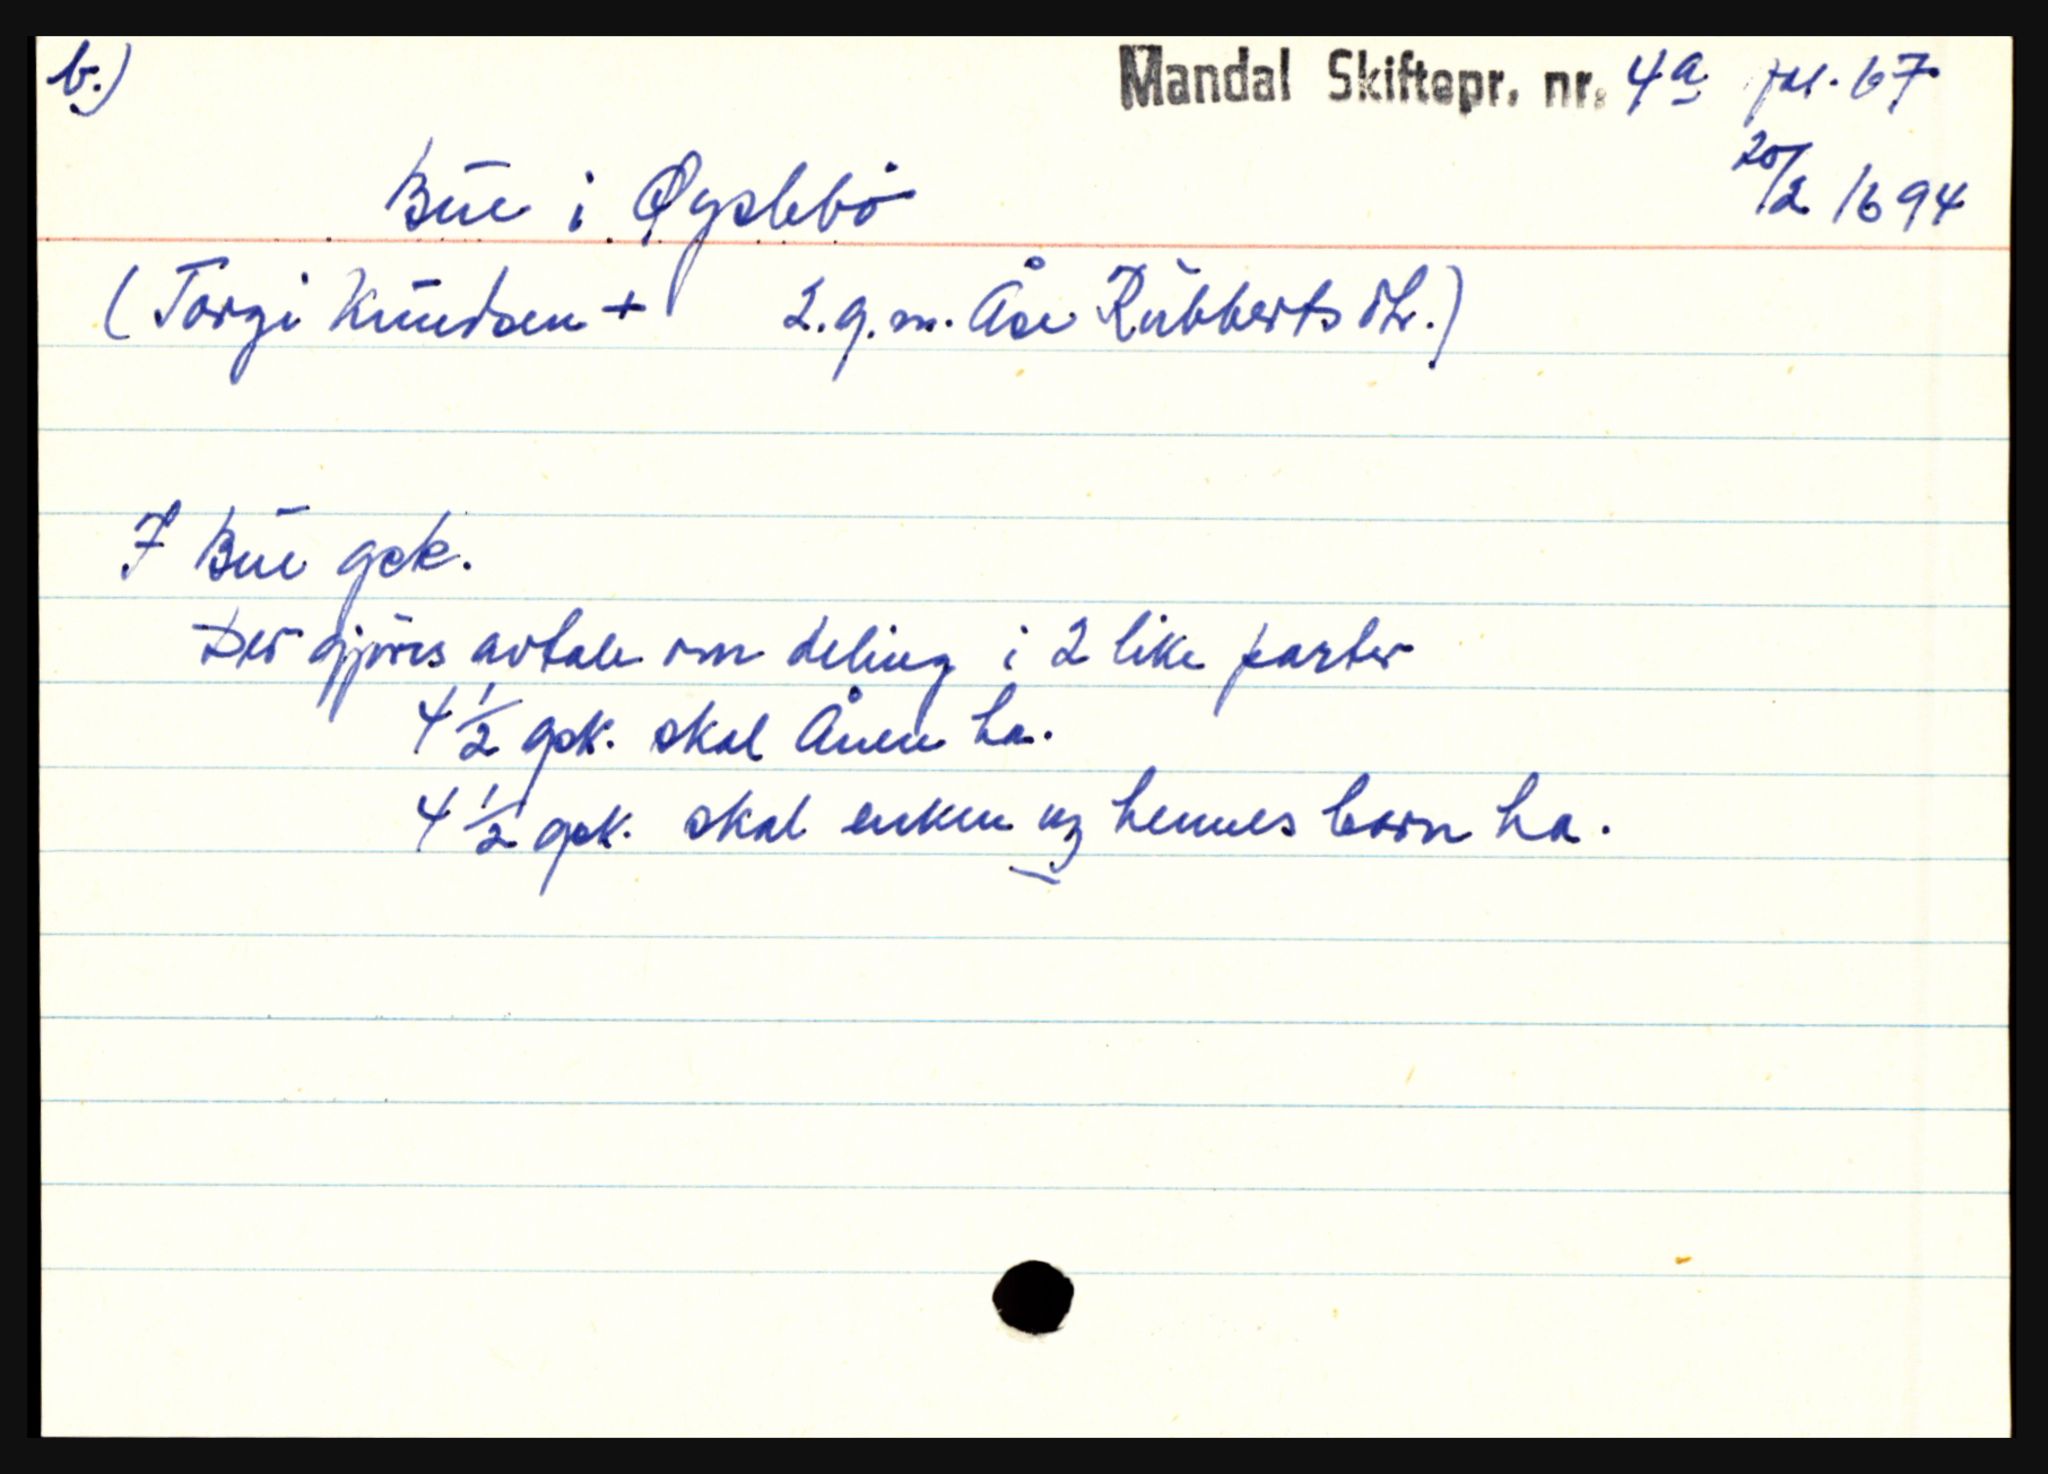 b.) Mandal Skiftepr. nr. 4a fol. 67
20/2 1694
Bue i Øyslebö
(Torgi Knudsen + 2.g.m. Åse Rubbertsdtr.)
I Bue gsk.
Der gjöres avtale om deling i 2 like parter
4 1/2 gsk. skal Ånen ha.
4 1/2 gsk. skal enken og hennes born ha.